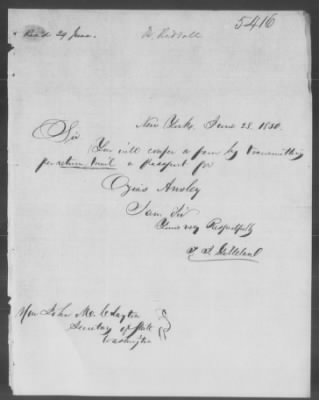 5416
Rec'd 29 June.
New York, June 28. 1850.
Sir
You will confer a favor by transmitting
per return mail a Passport for
Ansley
I am Sir
Yours very Respectfully
Hon John M. Clayton
Secretary of State
Washington